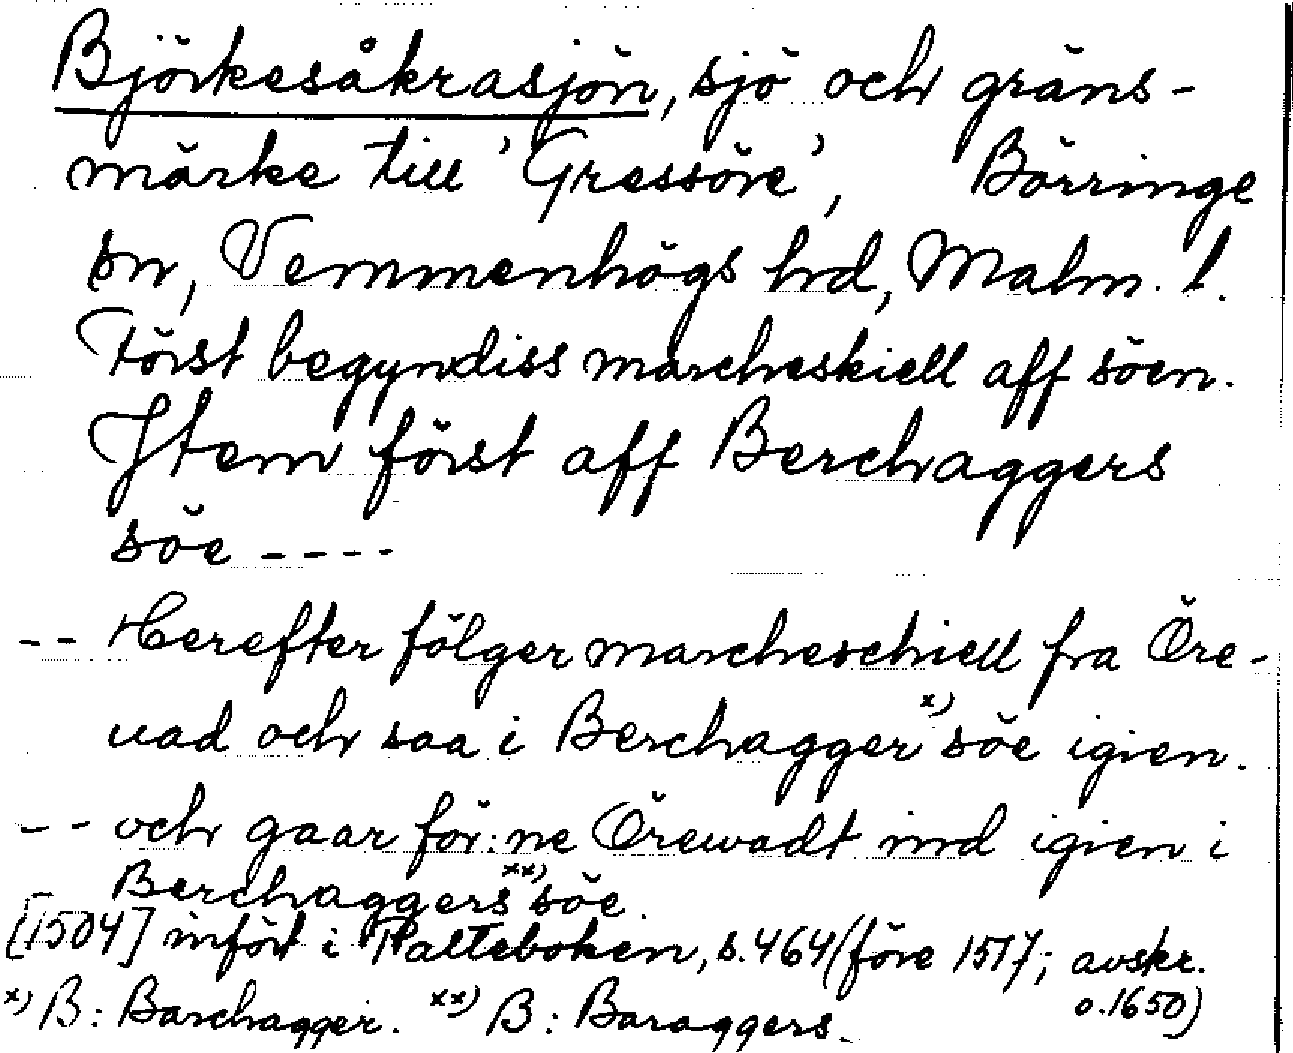 Björkesåkrasjön, sjö och gräns-
märke till 'Gressöre', Börringe
sn, Vemmenhögs hd, Malm. l.
Först begyndiss marcheskiell aff söen.
Item först aff Berchaggers
söe ----
-- Herefter fölger marcheschiell fra Öre-
uad och saa i Berchagger x) söe igien.
-- och gaar för:ne Örewadt ind igien i
Berchaggers xx) söe.
[1504] infört i Palteboken, s. 464 (före 1517; avskr.
o. 1650)
x) B: Barchagger. xx) B: Baraggers.